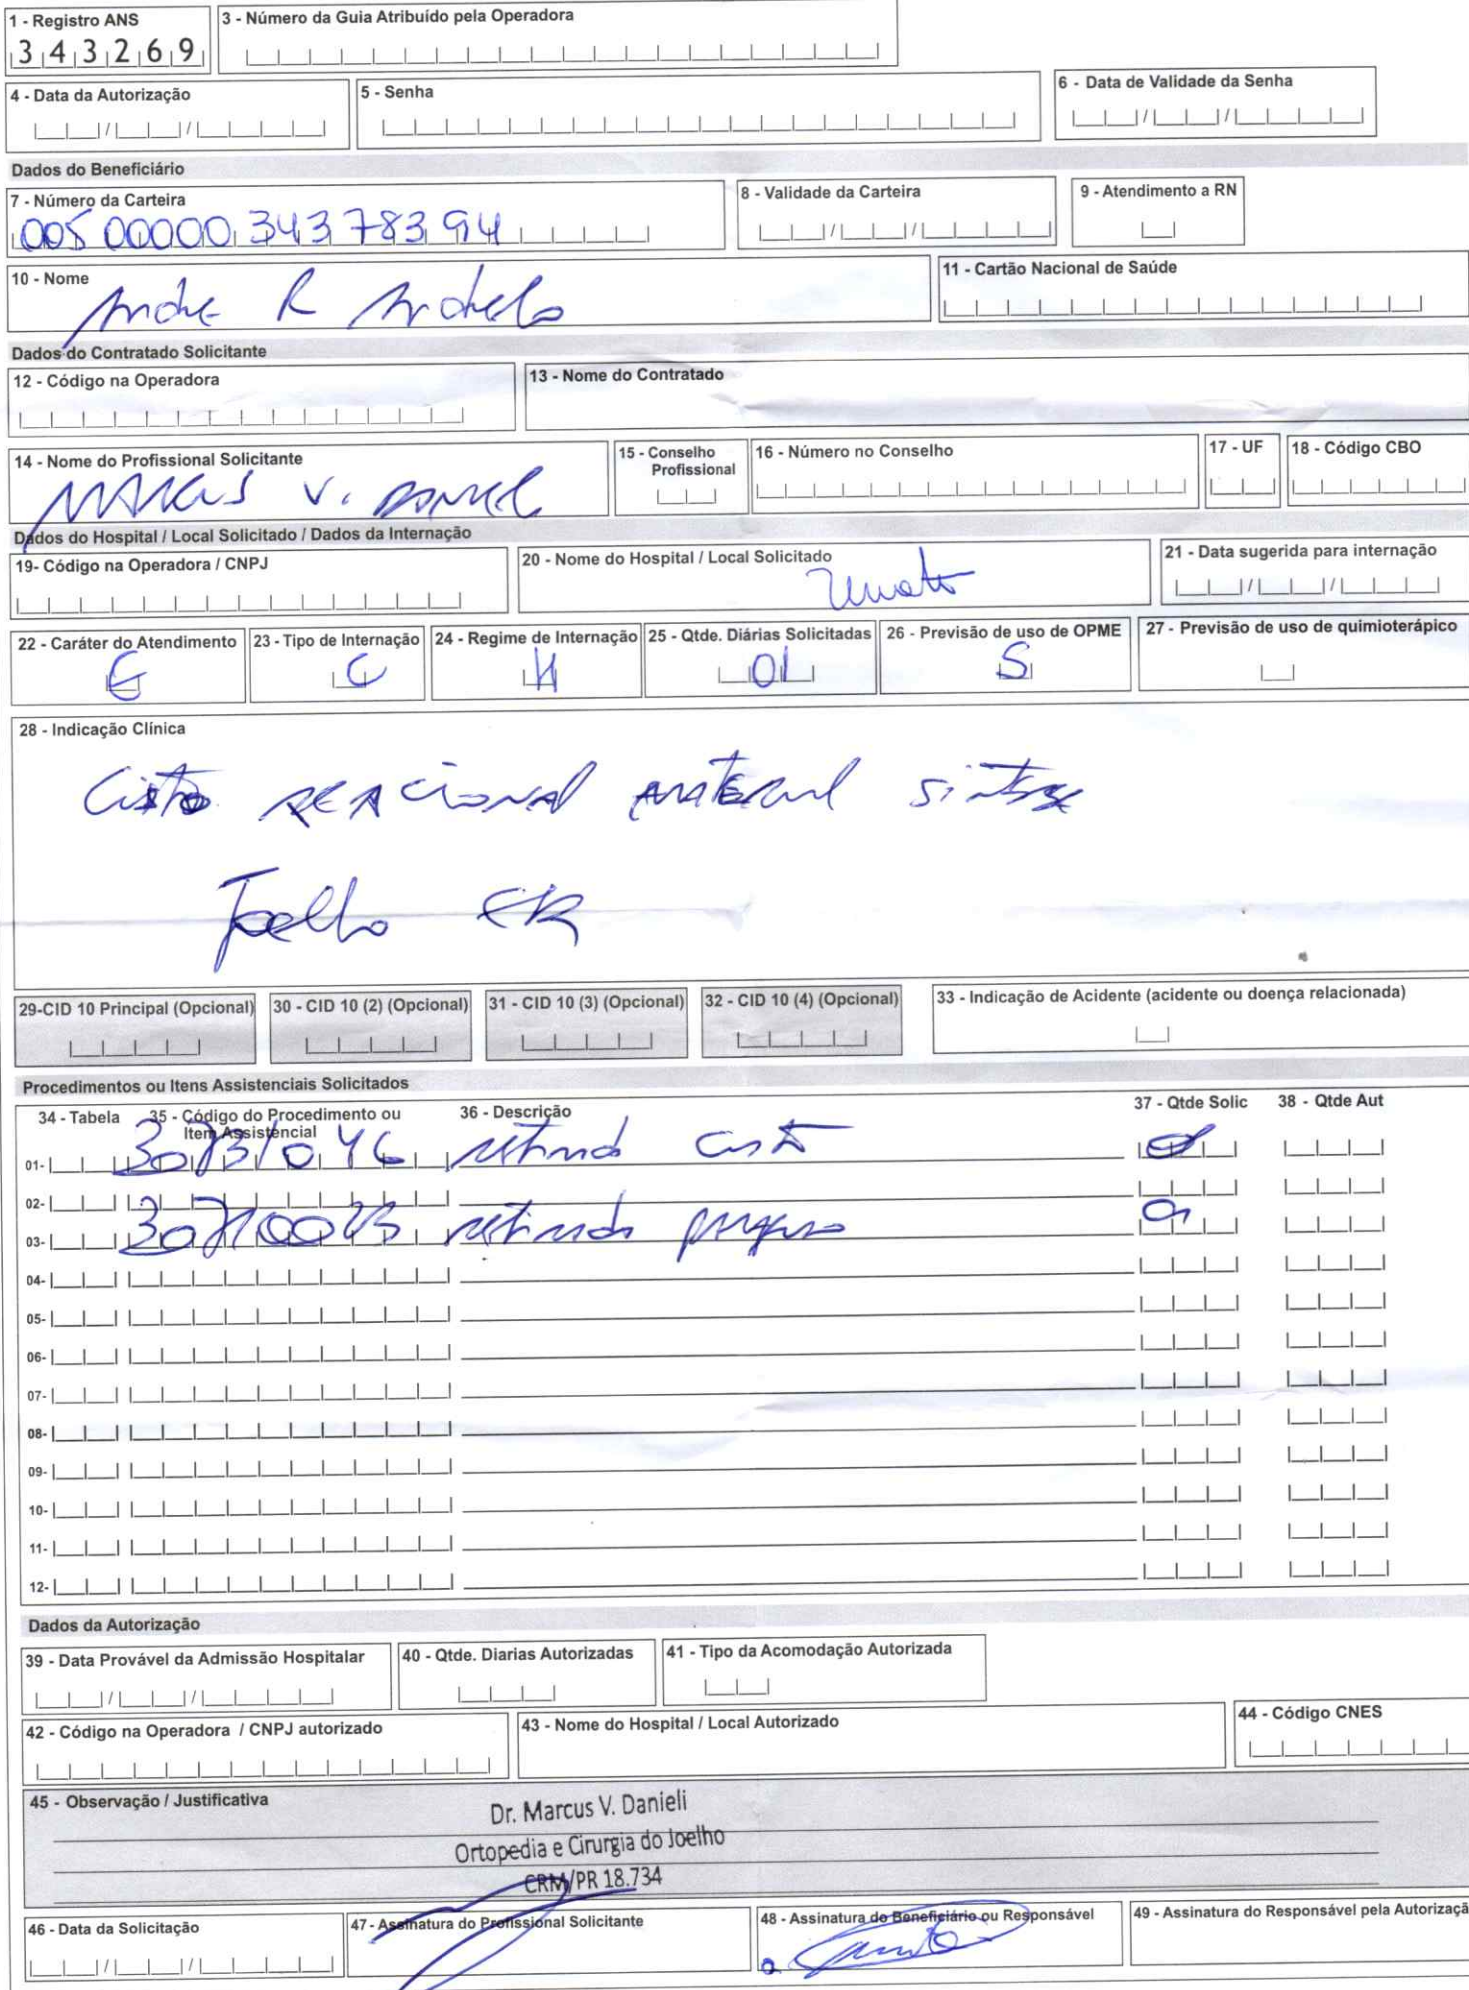 1 - Registro ANS
343269
3 - Número da Guia Atribuído pela Operadora
4 - Data da Autorização
5 - Senha
6 - Data de Validade da Senha
Dados do Beneficiário
7 - Número da Carteira
005 00000 343 783 94
8 - Validade da Carteira
9 - Atendimento a RN
10 - Nome
Andre R
11 - Cartão Nacional de Saúde
Dados do Contratado Solicitante
12 - Código na Operadora
13 - Nome do Contratado
14 - Nome do Profissional Solicitante
V.
15 - Conselho Profissional
16 - Número no Conselho
17 - UF
18 - Código CBO
Dados do Hospital / Local Solicitado / Dados da Internação
19- Código na Operadora / CNPJ
20 - Nome do Hospital / Local Solicitado
21 - Data sugerida para internação
22 - Caráter do Atendimento
E
23 - Tipo de Internação
C
24 - Regime de Internação
H
25 - Qtde. Diárias Solicitadas
01
26 - Previsão de uso de OPME
S
27 - Previsão de uso de quimioterápico
28 - Indicação Clínica
Cisto reacional material sintese
Joelho
29-CID 10 Principal (Opcional)
30 - CID 10 (2) (Opcional)
31 - CID 10 (3) (Opcional)
32 - CID 10 (4) (Opcional)
33 - Indicação de Acidente (acidente ou doença relacionada)
Procedimentos ou Itens Assistenciais Solicitados
34 - Tabela
35 - Código do Procedimento ou Item Assistencial
36 - Descrição
37 - Qtde Solic
38 - Qtde Aut
01- retirada cisto
02-
03- retirada
04-
05-
06-
07-
08-
09-
10-
11-
12-
Dados da Autorização
39 - Data Provável da Admissão Hospitalar
40 - Qtde. Diarias Autorizadas
41 - Tipo da Acomodação Autorizada
42 - Código na Operadora / CNPJ autorizado
43 - Nome do Hospital / Local Autorizado
44 - Código CNES
45 - Observação / Justificativa
Dr. Marcus V. Danieli
Ortopedia e Cirurgia do Joelho
CRM/PR 18.734
46 - Data da Solicitação
47 - Assinatura do Profissional Solicitante
48 - Assinatura do Beneficiário ou Responsável
49 - Assinatura do Responsável pela Autorizaçã